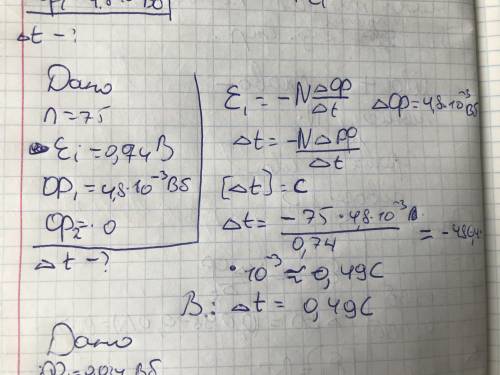 Δt - ?
Дано
n = 75
Ɛi = 0,74 В
Φ₁ = 4,8·10⁻³ Вб
Φ₂ = 0
Δt - ?
Ɛi = -NΔΦ/Δt ΔΦ = 4,8·10⁻³ Вб
Δt = -NΔΦ/Δt
[Δt] = С
Δt = -75·4,8·10⁻³/0,74 =
·10⁻³ ≈ 0,49 С
В: Δt = 0,49 С
Дано